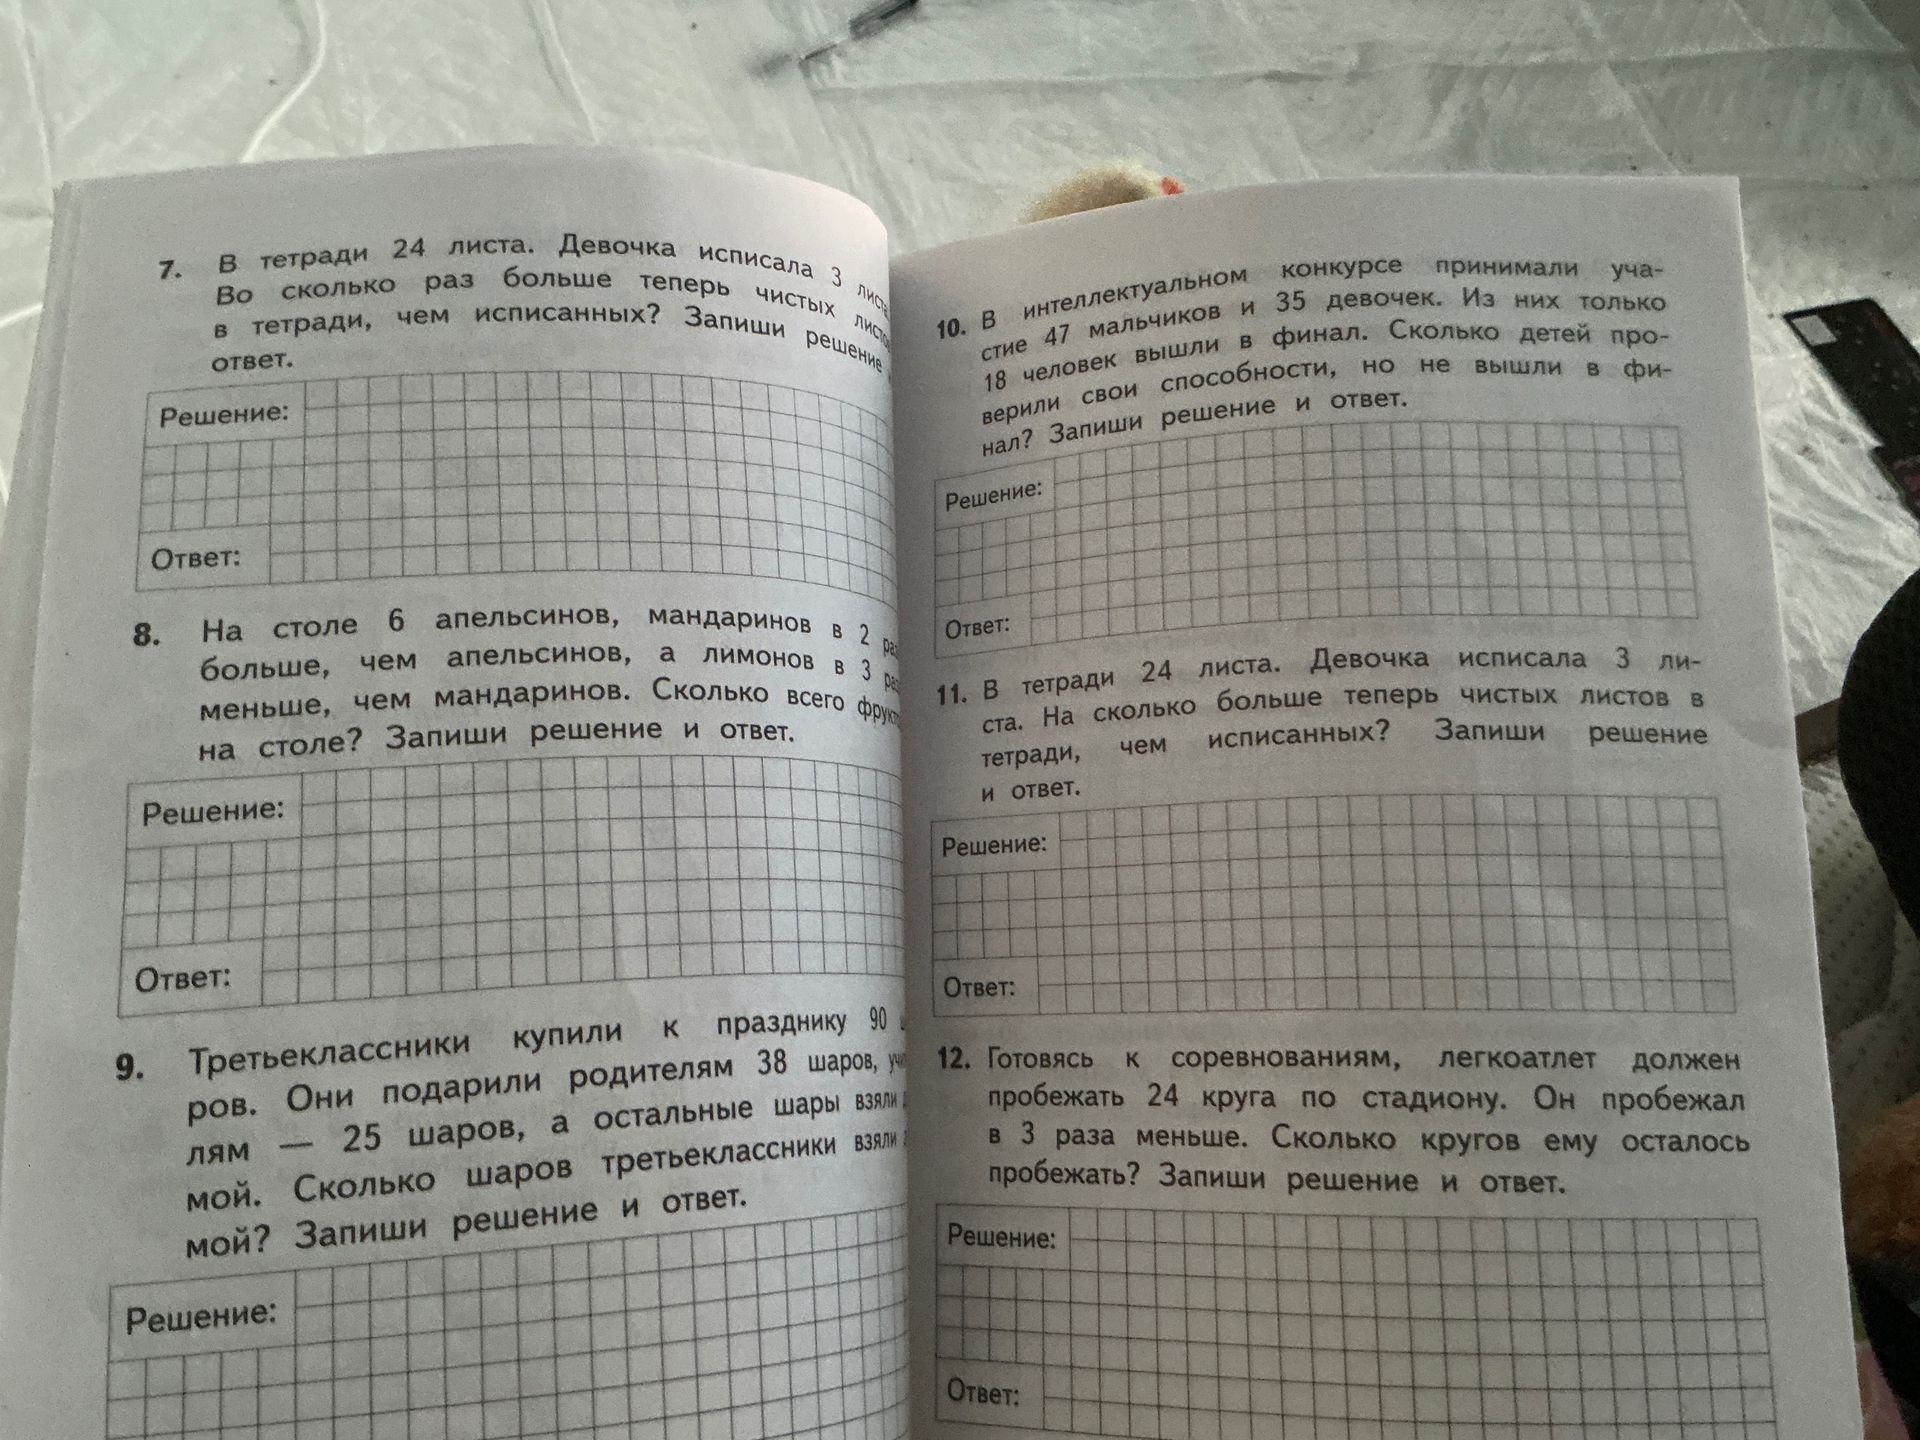 7. В тетради 24 листа. Девочка исписала 3
Во сколько раз больше теперь чистых
в тетради, чем исписанных? Запиши решение
ответ.
Решение:
Ответ:
8. На столе 6 апельсинов, мандаринов в 2
больше, чем апельсинов, а лимонов в 3
меньше, чем мандаринов. Сколько всего
на столе? Запиши решение и ответ.
Решение:
Ответ:
9. Третьеклассники купили к празднику 90
ров. Они подарили родителям 38 шаров,
лям — 25 шаров, а остальные шары взяли
мой. Сколько шаров третьеклассники взяли
мой? Запиши решение и ответ.
Решение:
10. В интеллектуальном конкурсе принимали уча-
стие 47 мальчиков и 35 девочек. Из них только
18 человек вышли в финал. Сколько детей про-
верили свои способности, но не вышли в фи-
нал? Запиши решение и ответ.
Решение:
Ответ:
11. В тетради 24 листа. Девочка исписала 3 ли-
ста. На сколько больше теперь чистых листов в
тетради, чем исписанных? Запиши решение
и ответ.
Решение:
Ответ:
12. Готовясь к соревнованиям, легкоатлет должен
пробежать 24 круга по стадиону. Он пробежал
в 3 раза меньше. Сколько кругов ему осталось
пробежать? Запиши решение и ответ.
Решение:
Ответ: